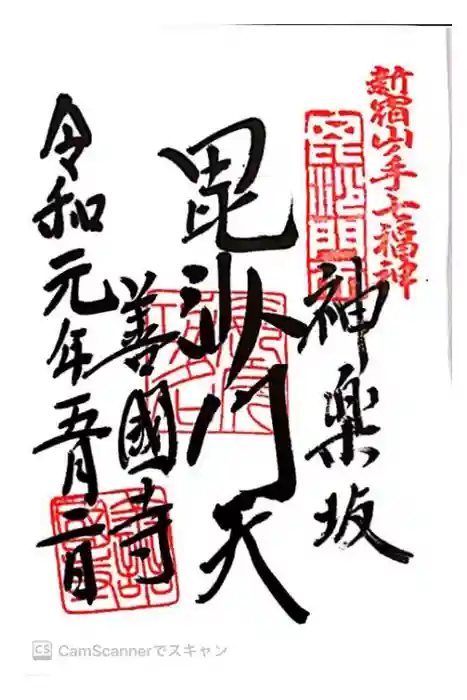 新宿山ノ手七福神
毘沙門天
神楽坂
毘沙門天
善國寺
令和元年五月二日
CS CamScannerでスキャン